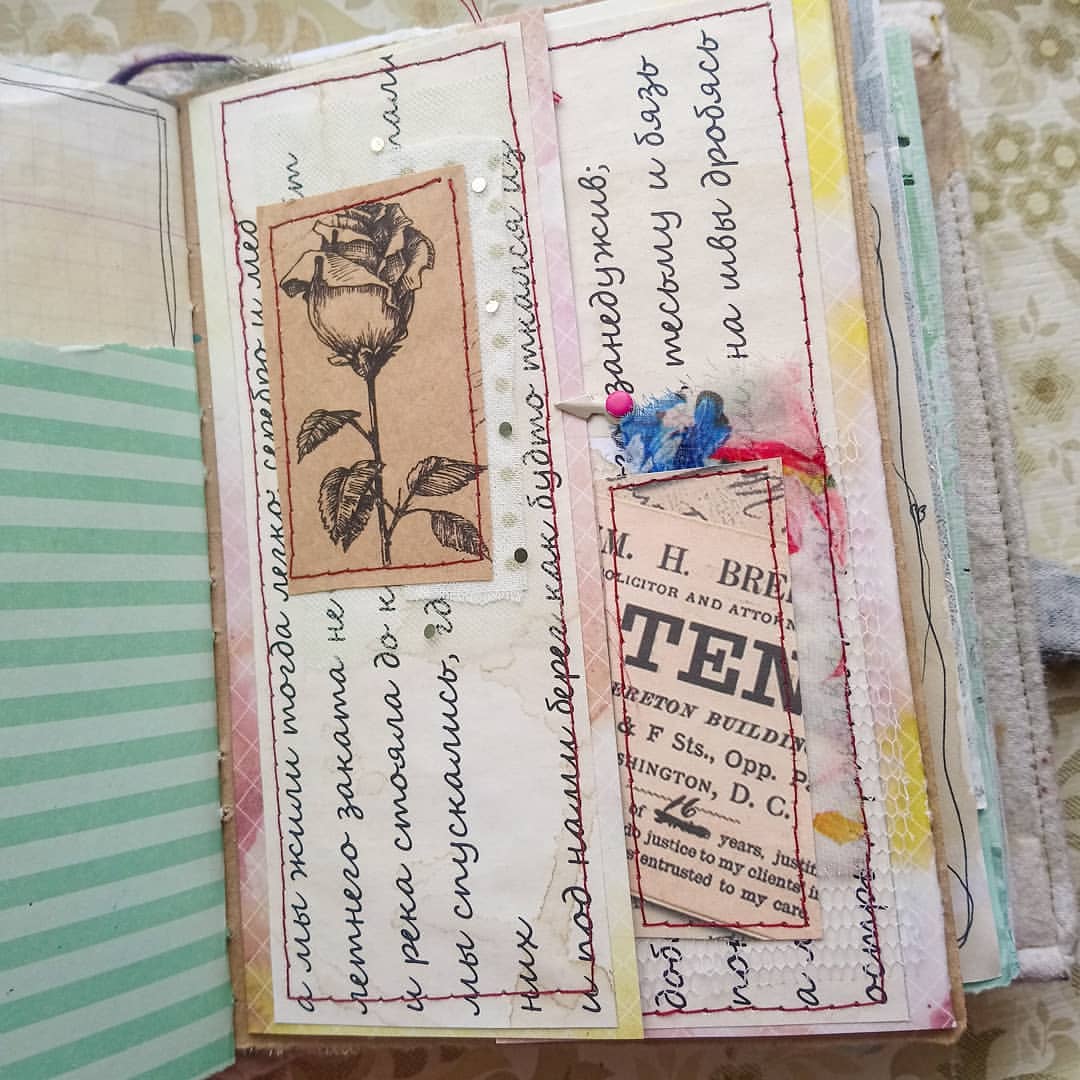 а мы жили тогда легко. серебро и мед
летнего заката не
и река стояла до
мы спускались,
них
и под нами берег как будто ткался из
занедужив;
тесьму и бязь
на швы дробясь
а
M. H. BRE
OLICITOR AND ATTORN
TEN
ERETON BUILDIN
& F Sts., Opp.
SHINGTON, D. C.
of 16 years, justi
do justice to my clients
entrusted to my care